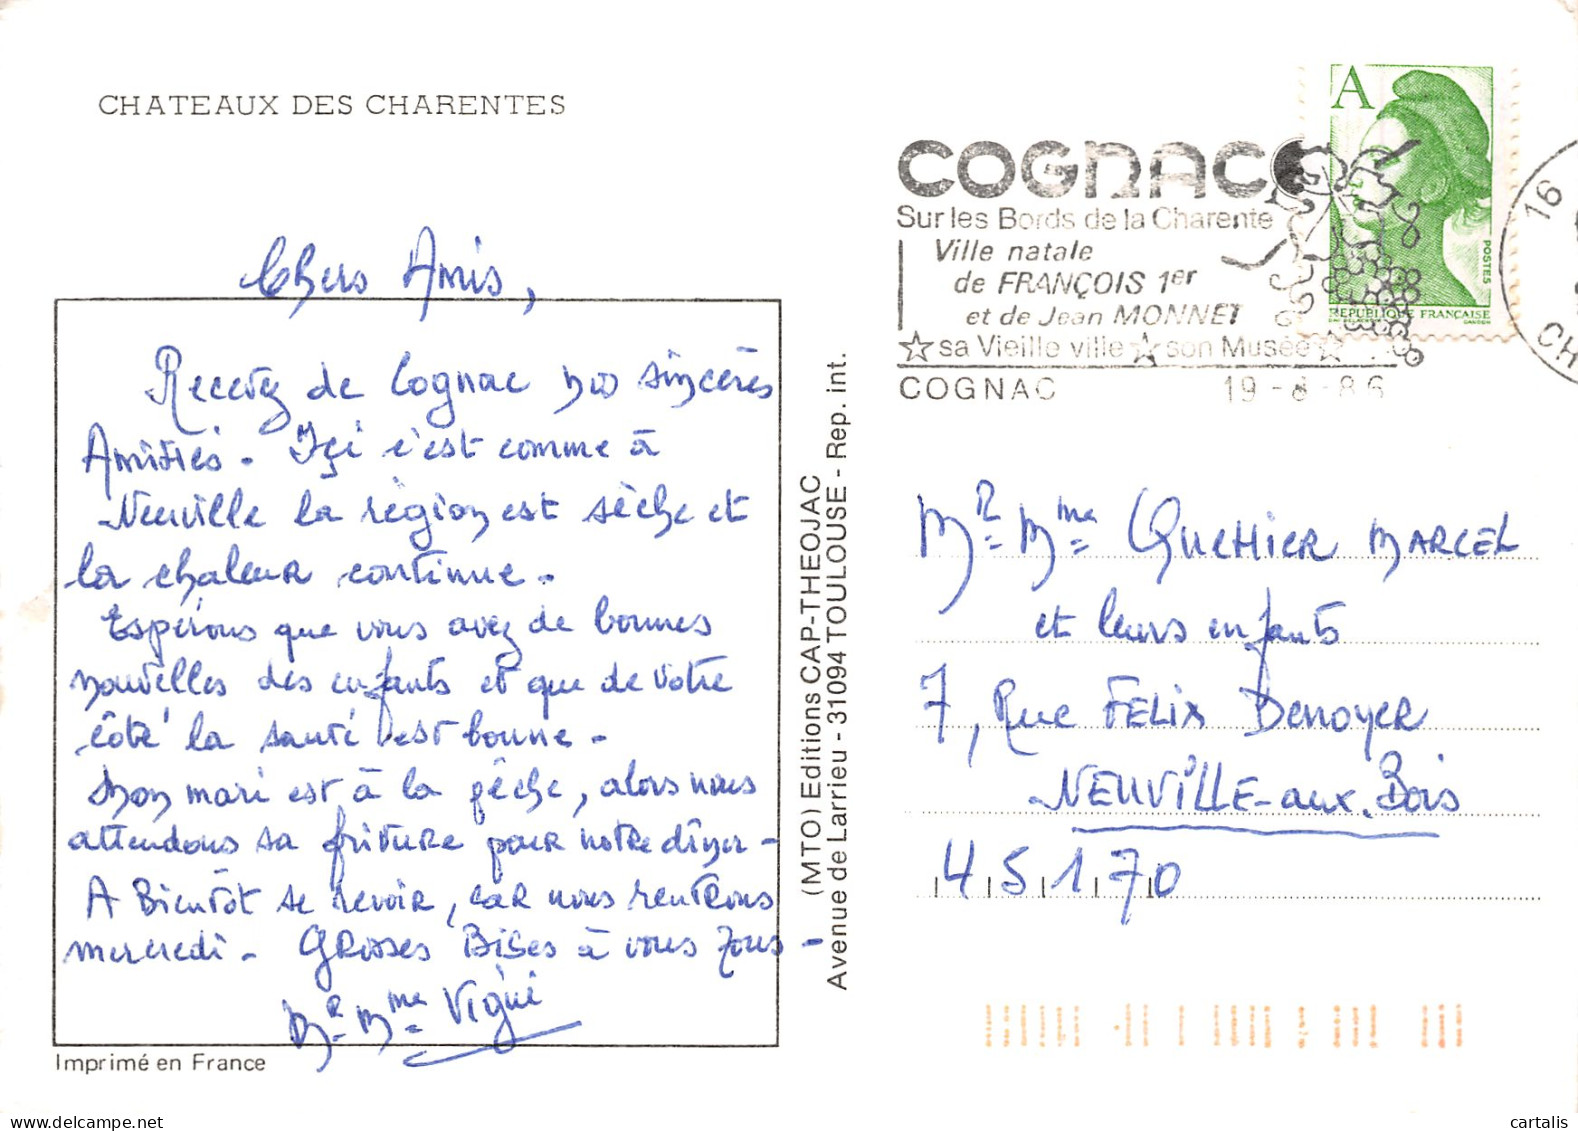 CHATEAUX DES CHARENTES
Chers Amis,
Recevez de Cognac nos sincères
Amitiés. Içi c'est comme à
Neuville la région est sèche et
la chaleur continue.
Espérons que vous avez de bonnes
nouvelles des enfants et que de votre
côté la santé est bonne.
Mon mari est à la pêche, alors nous
attendons sa friture pour notre dîner -
A Bientôt se revoir, car nous rentrons
mercredi. Grosses Bises à vous Tous -
Mr. Mme Vigué
Imprimé en France
(MTO) Editions CAP-THEOJAC
Avenue de Larrieu - 31094 TOULOUSE - Rep. int.
COGNAC
Sur les Bords de la Charente
Ville natale
de FRANÇOIS 1er
et de Jean MONNET
sa Vieille ville son Musée
COGNAC 19-8-86
A
POSTES
REPUBLIQUE FRANÇAISE
GANDON
16
CH
Mr. Mme Quettier MARCEL
et leurs enfants
7, Rue FELIX Denoyer
NEUVILLE-aux-Bois
45170
cartalis